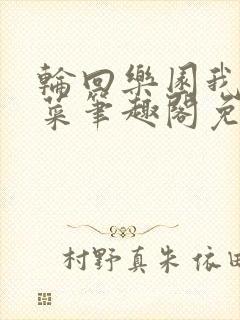 輪回樂園我
菜筆趣閣免
村野真朱 依田